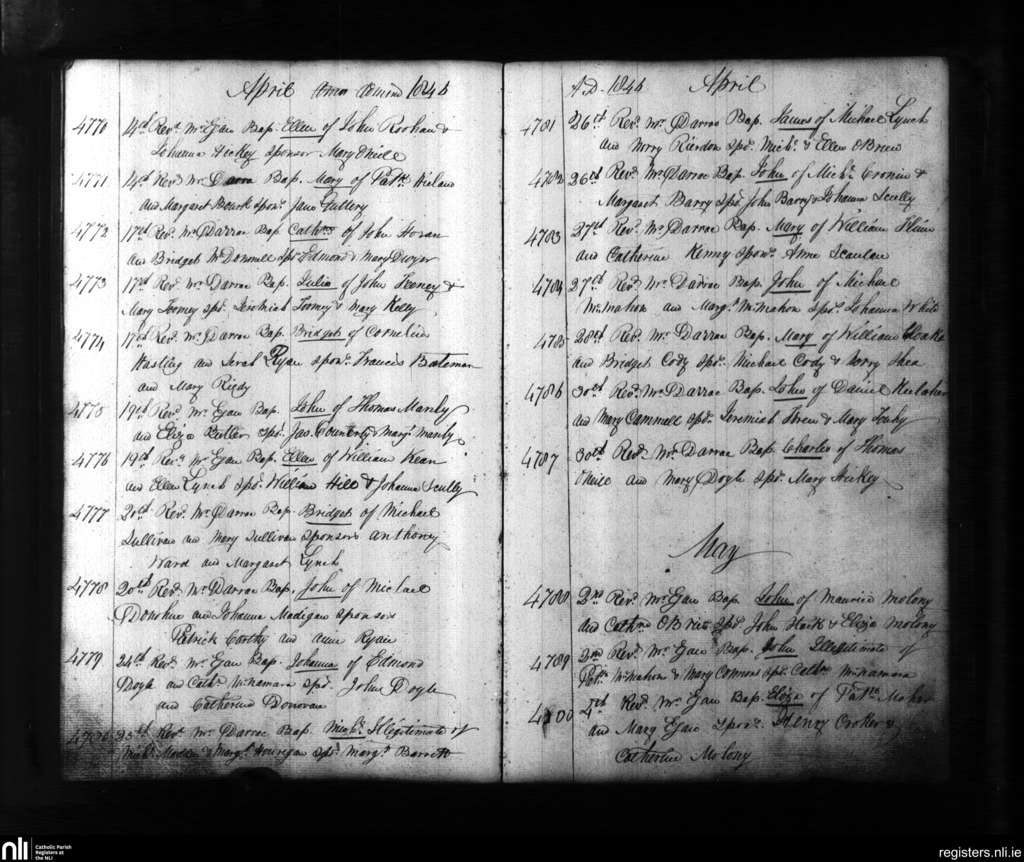 April Anno Domini 1846
4770 14th Revd. Mr Egan Bap. Ellen of John &
Johanna Hickey sponsor Mary O'Neill
4771 14th Revd Mr Darrac Bap. Mary of Patk.
and Margaret Bourk sponr. Jane Guttery
4772 17th Revd. Mr Darrac Bap. Cathne of John Horan
and Bridget McDonnell sprs Edmond & Mary Dwyer
4773 17th Revd Mr Darrac Bap. Julia of John Feeney &
Mary Toomey sprs. Jeremiah Toomey & Mary Kelly
4774 17th Revd. Mr Darrac Bap. Bridget of Cornelius
and Sarah Ryan sponr. Francis Bateman
and Mary Riedy
4775 19th Revd Mr Egan Bap. John of Thomas Manly
and Eliza Butler sprs. Jas. & Margt. Manly
4776 19th Revd Mr Egan Bap. Ellen of William Kean
and Ellen Lynch sprs. William Hill & Johanna Scully
4777 20th Revd. Mr Darrac Bap. Bridget of Michael
Sullivan and Mary Sullivan sponsors Anthoney
Ward and Margaret Lynch
4778 20th Revd. Mr Darrac Bap. John of Michael
Donohue and Johanna Madigan sponsors
Patrick and Anne Ryan
4779 24th Revd. Mr Egan Bap. Johanna of Edmond
Doyle and Cathe. McNamara sprs. John Doyle
and Catherine Donovan
4780 25th Revd. Mr Darrac Bap. Illegitimate of
Michl. & Margt. Hourigan sprs. Margt. Barrett
A.D. 1846 April
4781 26th Revd. Mr Darrac Bap. James of Michael Lynch
and Norry Riordon sprs. Michl. & Ellen O'Brien
4782 26th Revd. Mr Darrac Bap. John of Michl. Cronin &
Margaret Barry sprs. John Barry & Johanna Scully
4783 27th Revd. Mr Darrac Bap. Mary of William
and Catherine Kenny sponr. Anne Scanlan
4784 27th Revd. Mr Darrac Bap. John of Michael
McMahon and Margt. McMahon sprs. Johanna White
4785 28th Revd. Mr Darrac Bap. Mary of William
and Bridget Cody sprs. Michael Cody & Norry Shea
4786 30th Revd. Mr Darrac Bap. John of Daniel
and Mary Cammell sprs. Jeremiah & Mary
4787 30th Revd. Mr Darrac Bap. Charles of Thomas
O'Neill and Mary Doyle sprs. Mary Hickey
May
4788 2nd Revd. Mr Egan Bap. John of Maurice Molony
and Cathne O'Brien sprs. John & Eliza Molony
4789 2nd Revd. Mr Egan Bap. John Illegitimate of
Patk. McMahon & Mary Connors sprs. Cathe. McNamara
4th Revd. Mr Egan Bap. Eliza of Patk.
and Mary Egan sponr. Henry Croker &
Catherine Molony
nli
Catholic Parish
Registers at
the NLI
registers.nli.ie